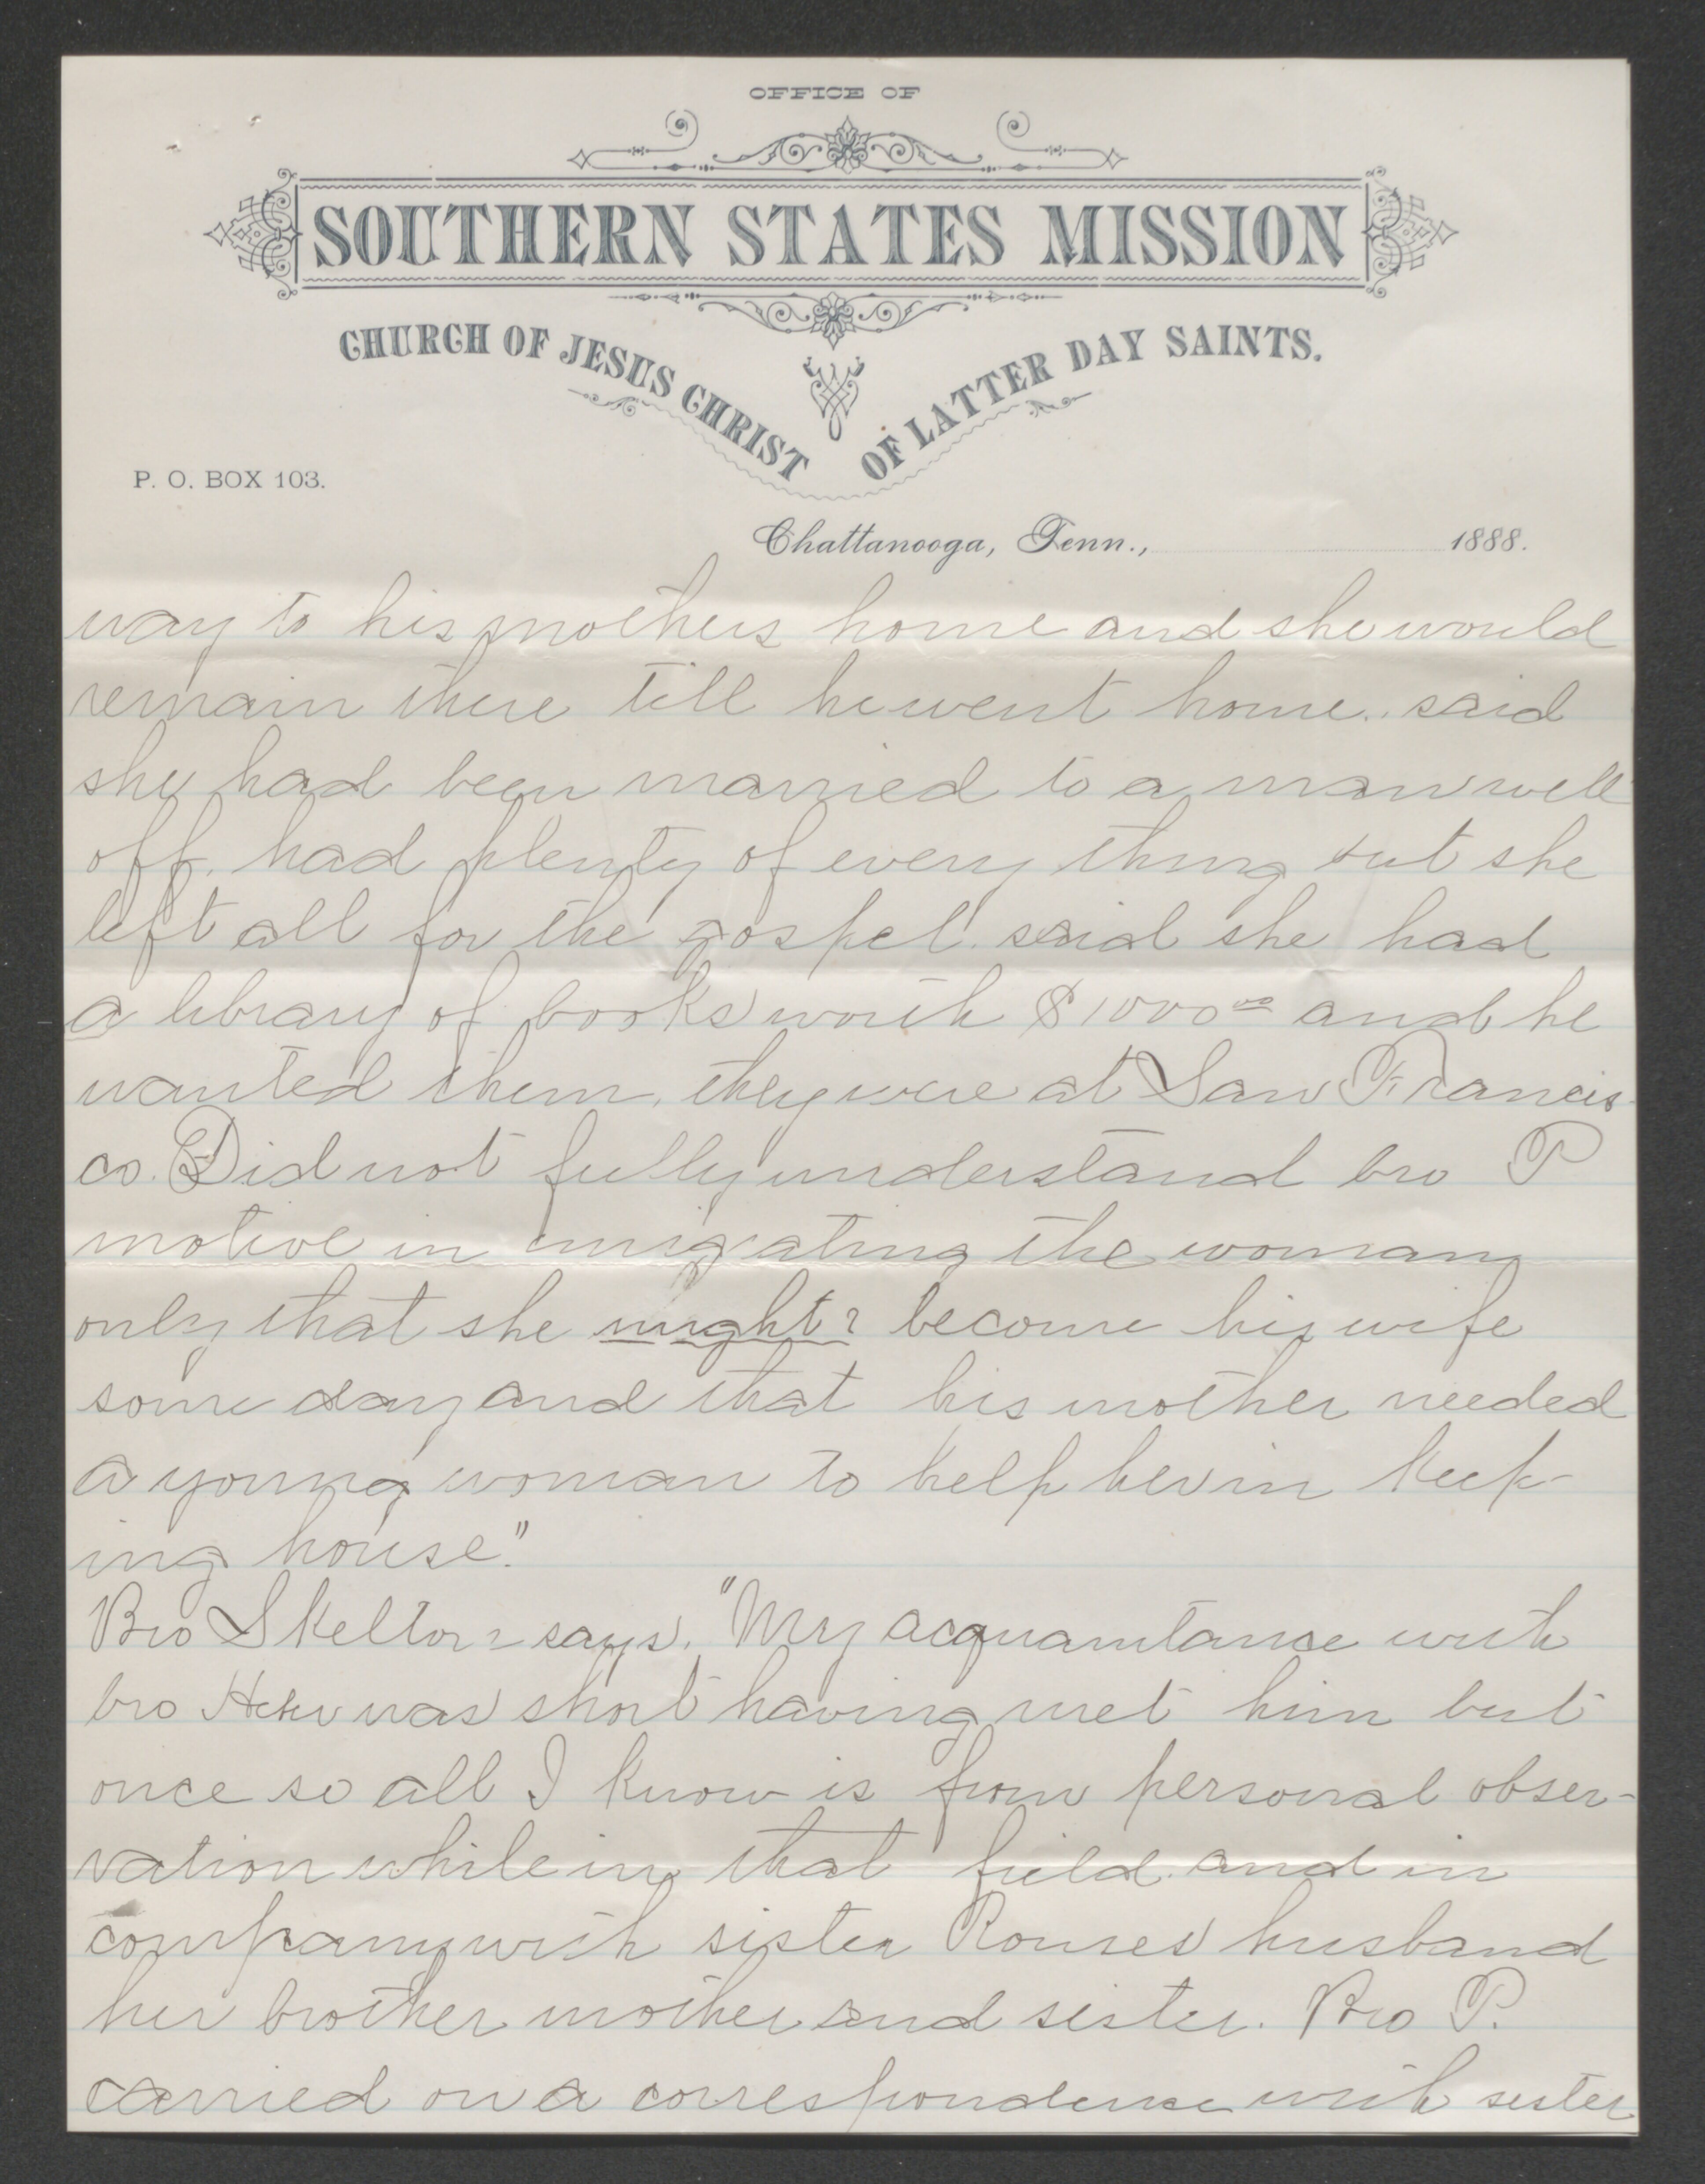 OFFICE OF
SOUTHERN STATES MISSION
CHURCH OF JESUS CHRIST OF LATTER DAY SAINTS.
P. O. BOX 103.
Chattanooga, Tenn., 1888.
way to his mothers home and she would
remain there till he went home. said
she had been married to a man well
off. had plenty of every thing but she
left all for the gospel. said she had
a library of books worth $1000.00 and he
wanted them, they were at San Francis-
co. Did not fully understand bro P
motive in emigrating the woman
only that she might? become his wife
some day and that his mother needed
a young woman to help her in keep-
ing house."
Bro Skelton says. "My acquaintance with
bro was short having met him but
once so all I know is from personal obser-
vation while in that field. and in
company with sister Rouses husband
her brother mother and sister. Bro P.
carried on a correspondence with sister